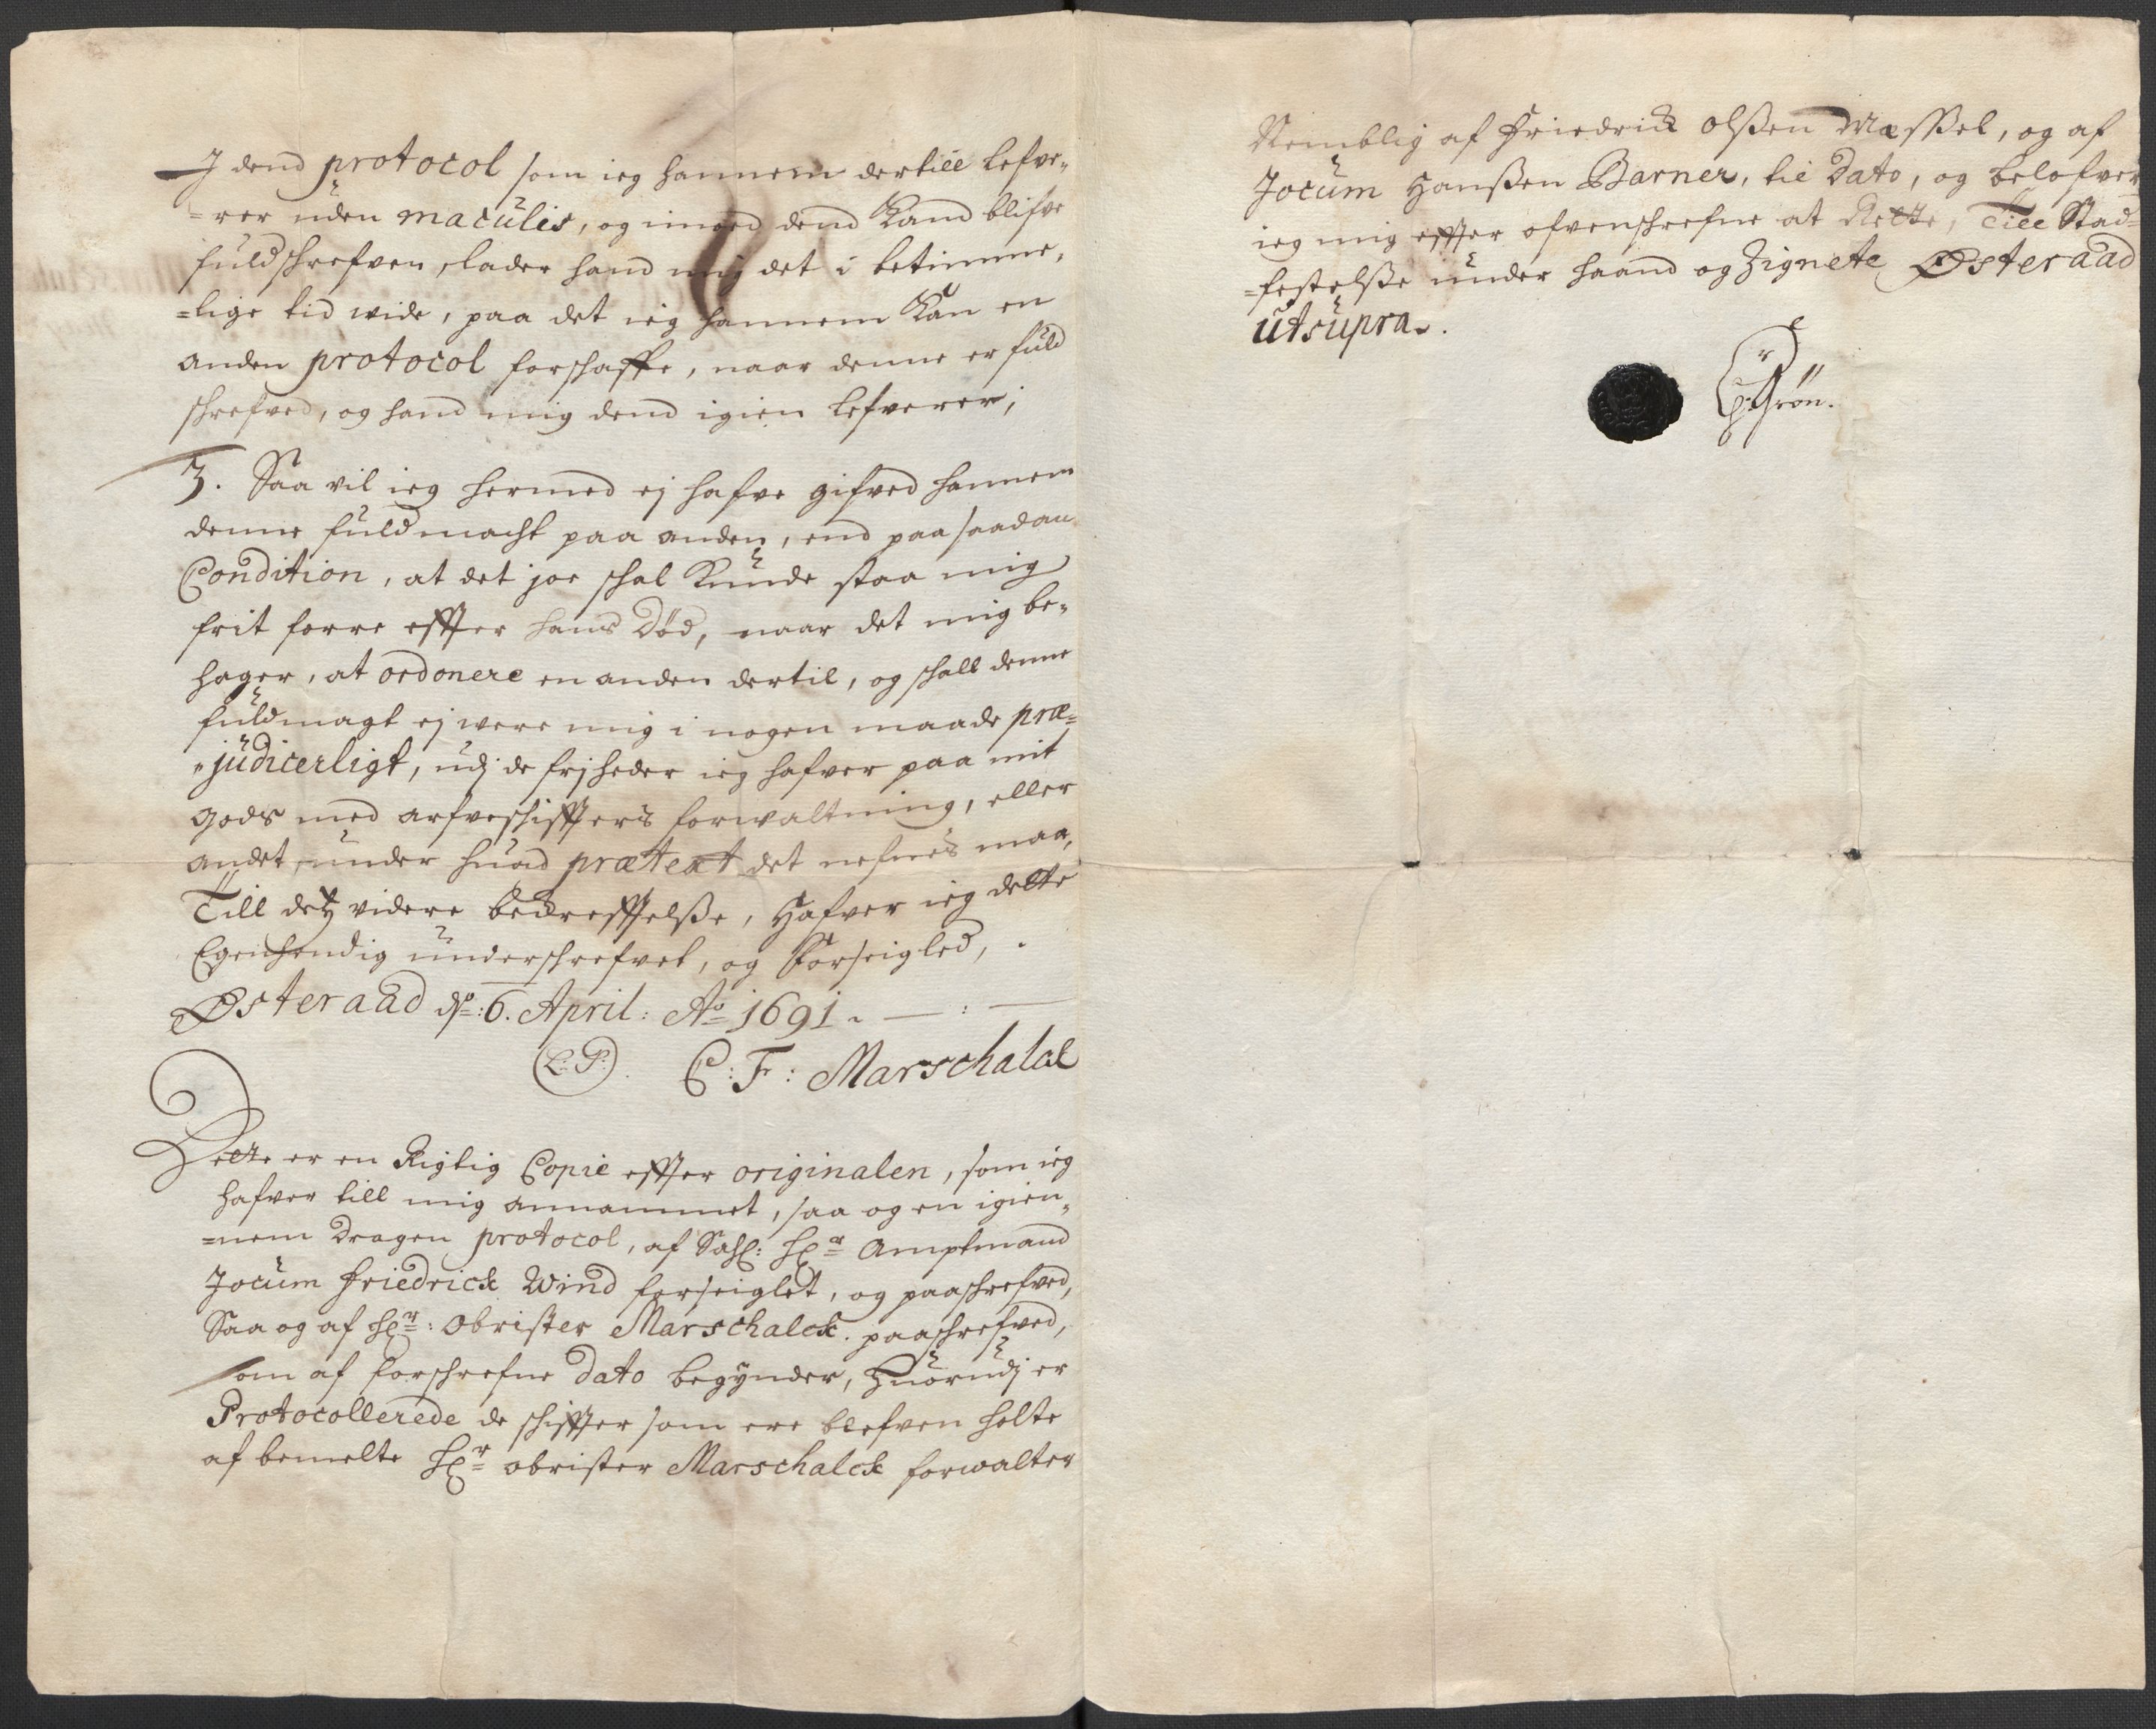 I dend protocol som ieg hannem dertill lefve„
=rer uden maculis, og imod dend Kand blifve
fuldschrefven, lader hand mig det i betimme„
=lige tid wide, paa det ieg hannem Kan en
anden protocol forschaffe, naar denne er fuld
schrefved, og hand mig dend igien lefverer;
3. Saa vil ieg hermed ej hafve gifved hannem
denne fuldmacht paa anden, end paa saadan
Condition, at det joe schal Kunde staa mig
frit forre effter hans Død, naar det mig be„
hager, at ordonere en anden dertil, og schall denne
fuldmagt ej were mig i nogen maade præ=
„judicerligt, udj de frjheder ieg hafver paa mit
gods med arfveschiffters forwaltning, eller
andet, under huad prætext det nefnes maa,
Till detz videre bekrefftelsße, Hafver ieg dette
Egenhendig underschrefvet, og Forseigled,
Østeraad dn: 6. April: Ao 1691. — : —
(L: S:). C: F: Marschalck
Dette er en Rigtig Copie effter originalen, som ieg
hafver till mig annammet, saa og en igien„
=nem Dragen protocol, af Sahl: Hr Amptmand
Jocum Friedrick Wind forseiglet, og paaschrefved,
Saa og af Hr: Obrister Marschalck. paaschrefved,
som af forschrefne Dato begynder, Huorudj er
Protocollerede de schiffter som ere blefven holte
af bemelte Hr obrister Marschalck forwalter
Nemblig af Friedrick Olsßen Mæssel, og af
Jocum Hansßen Barner, til Dato, og belofver
ieg mig effter ofvenschrefne at Rette, Till Stad=
=festelsße under haand og Zignete Østeraad
ut supra.
Grøn.